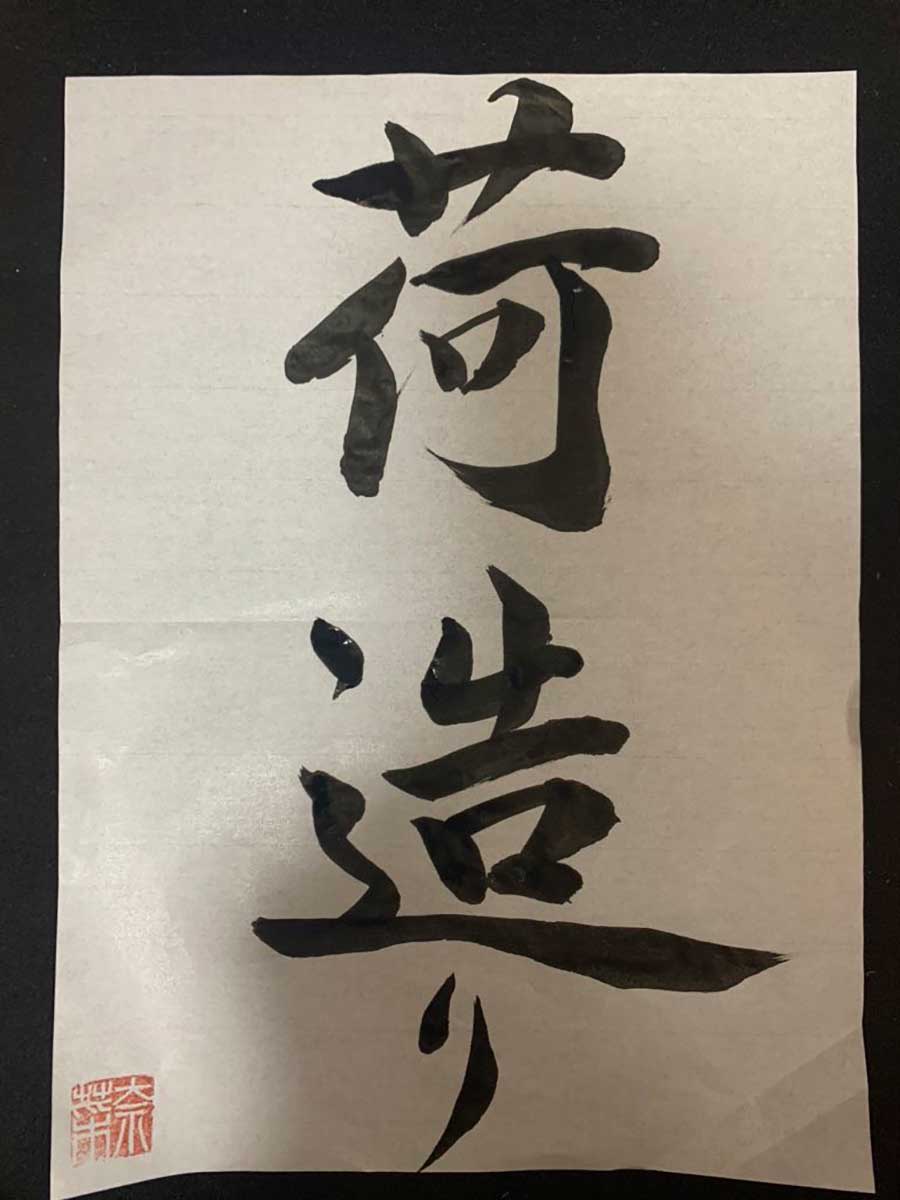 荷造り
奈葉